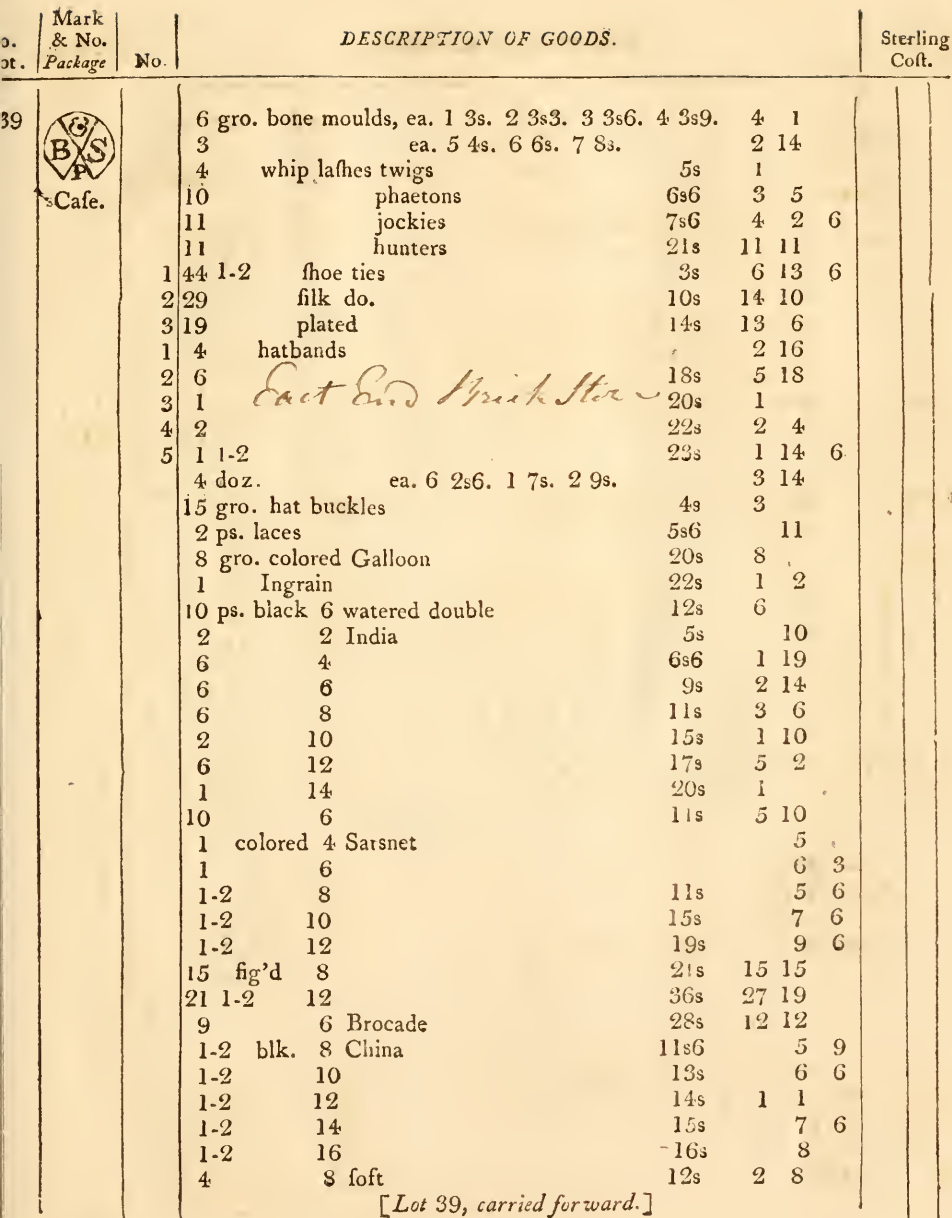 Mark
& No.
Package No. DESCRIPTION OF GOODS. Sterling
Coſt.
39 & B S P
Caſe.
6 gro. bone moulds, ea. 1 3s. 2 3s3. 3 3s6. 4 3s9. 4 1
3 ea. 5 4s. 6 6s. 7 8s. 2 14
4 whip laſhes twigs 5s 1
10 phaetons 6s6 3 5
11 jockies 7s6 4 2 6
11 hunters 21s 11 11
1 44 1-2 ſhoe ties 3s 6 13 6
2 29 ſilk do. 10s 14 10
3 19 plated 14s 13 6
1 4 hatbands 2 16
2 6 18s 5 18
East End Brick Store
3 1 20s 1
4 2 22s 2 4
5 1 1-2 23s 1 14 6
4 doz. ea. 6 2s6. 1 7s. 2 9s. 3 14
15 gro. hat buckles 4s 3
2 ps. laces 5s6 11
8 gro. colored Galloon 20s 8
1 Ingrain 22s 1 2
10 ps. black 6 watered double 12s 6
2 2 India 5s 10
6 4 6s6 1 19
6 6 9s 2 14
6 8 11s 3 6
2 10 15s 1 10
6 12 17s 5 2
1 14 20s 1
10 6 11s 5 10
1 colored 4 Sarsnet 5
1 6 6 3
1-2 8 11s 5 6
1-2 10 15s 7 6
1-2 12 19s 9 6
15 fig'd 8 21s 15 15
21 1-2 12 36s 27 19
9 6 Brocade 28s 12 12
1-2 blk. 8 China 11s6 5 9
1-2 10 13s 6 6
1-2 12 14s 1 1
1-2 14 15s 7 6
1-2 16 16s 8
4 8 ſoft 12s 2 8
[Lot 39, carried forward.]